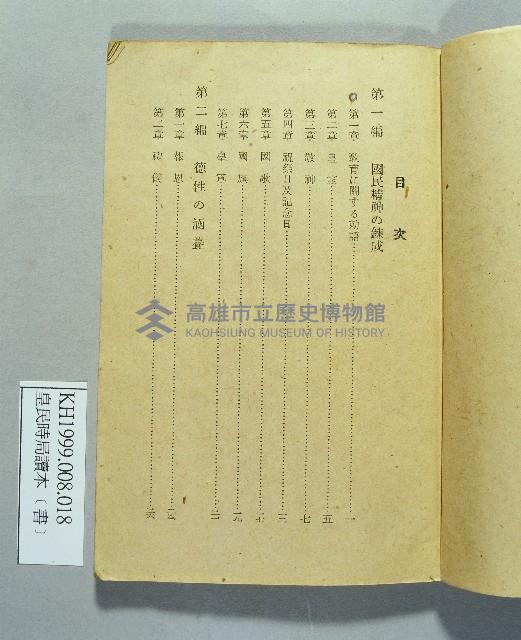 目次
第一編 國民精神の錬成
第一章 敎育に關する勅語 一
第二章 皇室 五
第三章 敬神 七
第四章 祝祭日及記念日
第五章 國歌
第六章 國旗
第七章 皇軍
第二編 德性の涵養
第一章 報恩
第二章 禮儀
高雄市立歷史博物館
KAOHSIUNG MUSEUM OF HISTORY
KH1999.008.018
皇民時局讀本（書）